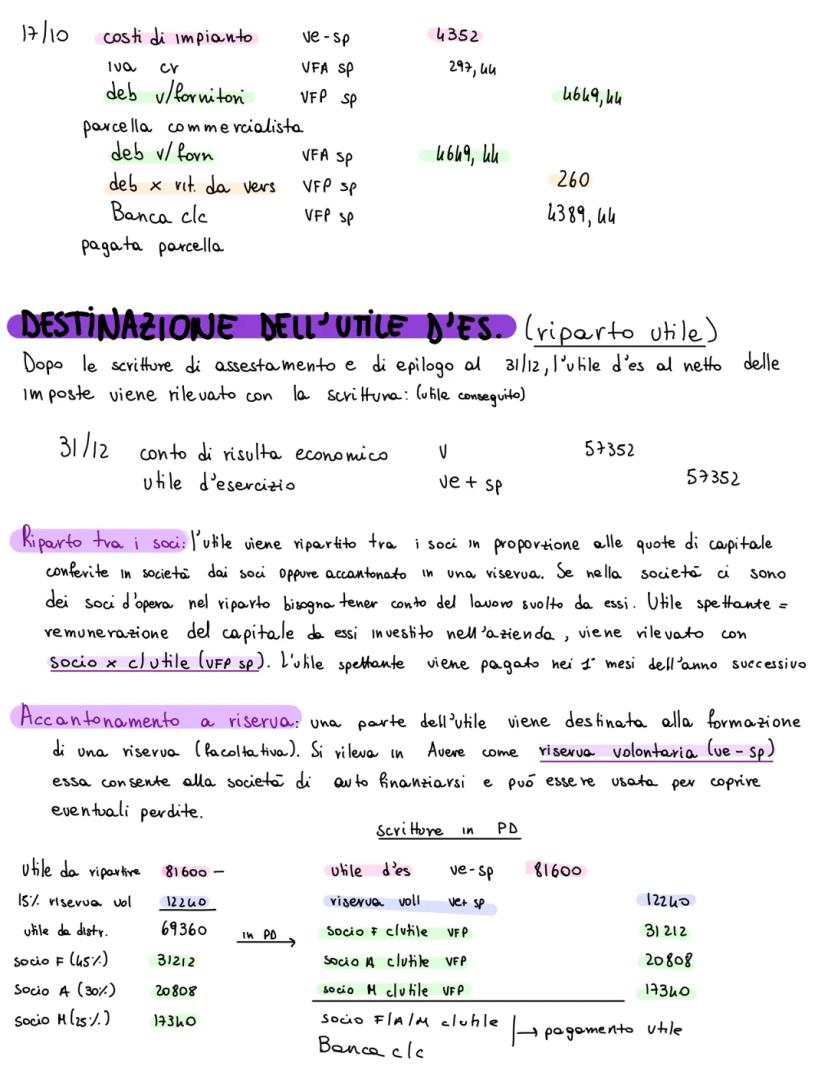 17/10 costi di impianto ve-sp 4352
iva cr VFA sp 297,44
deb v/fornitori VFP sp 4649,44
parcella commercialista
deb v/forn VFA sp 4649,44
deb x rit. da vers VFP sp 260
Banca c/c VFP sp 4389,44
pagata parcella
DESTINAZIONE DELL'UTILE D'ES. (riparto utile)
Dopo le scritture di assestamento e di epilogo al 31/12, l'utile d'es al netto delle
imposte viene rilevato con la scrittura: (utile conseguito)
31/12 conto di risulta economico V 57352
utile d'esercizio ve+ sp 57352
Riparto tra i soci: l'utile viene ripartito tra i soci in proporzione alle quote di capitale
conferite in società dai soci oppure accantonato in una riserva. Se nella società ci sono
dei soci d'opera nel riparto bisogna tener conto del lavoro svolto da essi. Utile spettante =
remunerazione del capitale da essi investito nell'azienda, viene rilevato con
socio x c/utile (VFP sp). L'utile spettante viene pagato nei 1° mesi dell'anno successivo
Accantonamento a riserva: una parte dell'utile viene destinata alla formazione
di una riserva (facoltativa). Si rileva in Avere come riserva volontaria (ve-sp)
essa consente alla società di auto finanziarsi e può essere usata per coprire
eventuali perdite.
scritture in PD
utile da ripartire 81600 - utile d'es ve-sp 81600
15% riserva vol 12240 riserva voll ve+ sp 12240
utile da distr. 69360 in PD → socio F c/utile VFP 31212
socio F (45%) 31212 socio A c/utile VFP 20808
socio A (30%) 20808 socio M c/utile VFP 17340
socio M (25%) 17340 socio F/A/M c/utile → pagamento utile
Banca c/c